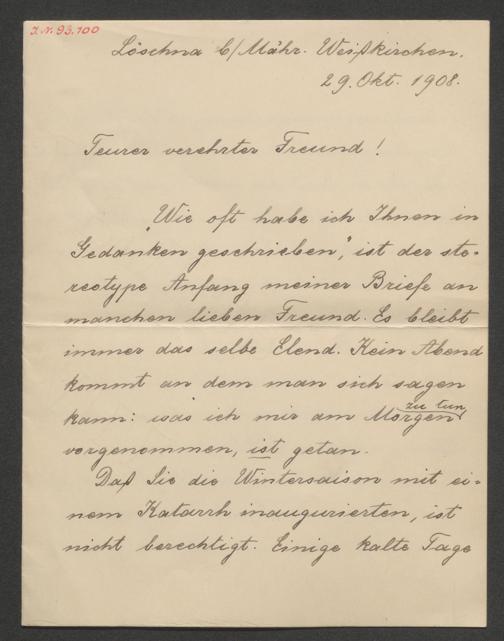 J.N. 93.100
Löschna b/Mähr. Weißkirchen.
29. Okt. 1908.
Teurer verehrter Freund!
„Wie oft habe ich Ihnen in
Gedanken geschrieben“, ist der ste-
reotype Anfang meiner Briefe an
manchen lieben Freund. Es bleibt
immer das selbe Elend. Kein Abend
kommt an dem man sich sagen
kann: was ich mir am Morgen zu tun
vorgenommen, ist getan.
Daß Sie die Wintersaison mit ei-
nem Katarrh inaugurierten, ist
nicht berechtigt. Einige kalte Tage